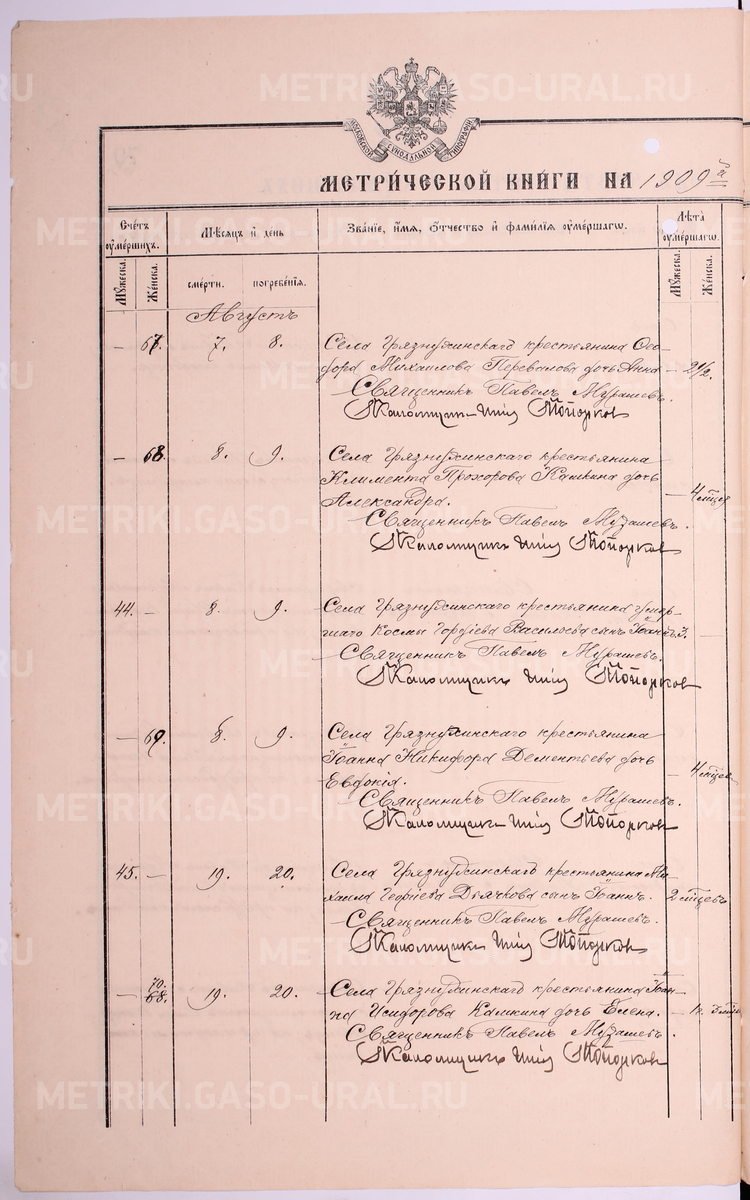 МЕТРИ́ЧЕСКОЙ КНИ́ГИ НА 1909й
Сче́тъ оу҆ме́ршихъ.
Му́жеска.
Же́нска.
Мѣ́сяцъ и҆ день
сме́рти.
погребе́нія.
Зва́ніе, и҆́мя, ѻ҆́тчество и҆ фами́лія оу҆ме́ршагѡ.
Лѣ́та оу҆ме́ршагѡ.
Му́жеска.
Же́нска.
Августъ
— 67. 7. 8. Села Грязнухинскаго крестьянина
Михаилова Перевалова дочь Анна — 2 1/2.
Священникъ Павелъ Мурашевъ.
Псаломщикъ Топорковъ
— 68. 8. 9. Села Грязнухинскаго крестьянина
Климента Прохорова Кашкина дочь
Александра. — 4 мѣсяц.
Священникъ Павелъ Мурашевъ.
Псаломщикъ Топорковъ
44. — 8. 9. Села Грязнухинскаго крестьянина умер-
шаго Космы Васильева сынъ Іоаннъ
Священникъ Павелъ Мурашевъ.
Псаломщикъ Топорковъ
— 69. 8. 9. Села Грязнухинскаго крестьянина
Іоанна Никифора Дементьева дочь
Евдокія. — 4 мѣсяц.
Священникъ Павелъ Мурашевъ.
Псаломщикъ Топорковъ
45. — 19. 20. Села Грязнухинскаго крестьянина Ми-
хаила Георгіева Дьячкова сынъ Іоаннъ. 2 мѣсяц.
Священникъ Павелъ Мурашевъ.
Псаломщикъ Топорковъ
— 70. 68. 19. 20. Села Грязнухинскаго крестьянина Іоан-
на Исидорова Кашкина дочь Елена.
Священникъ Павелъ Мурашевъ.
Псаломщикъ Топорковъ
METRIKI.GASO-URAL.RU